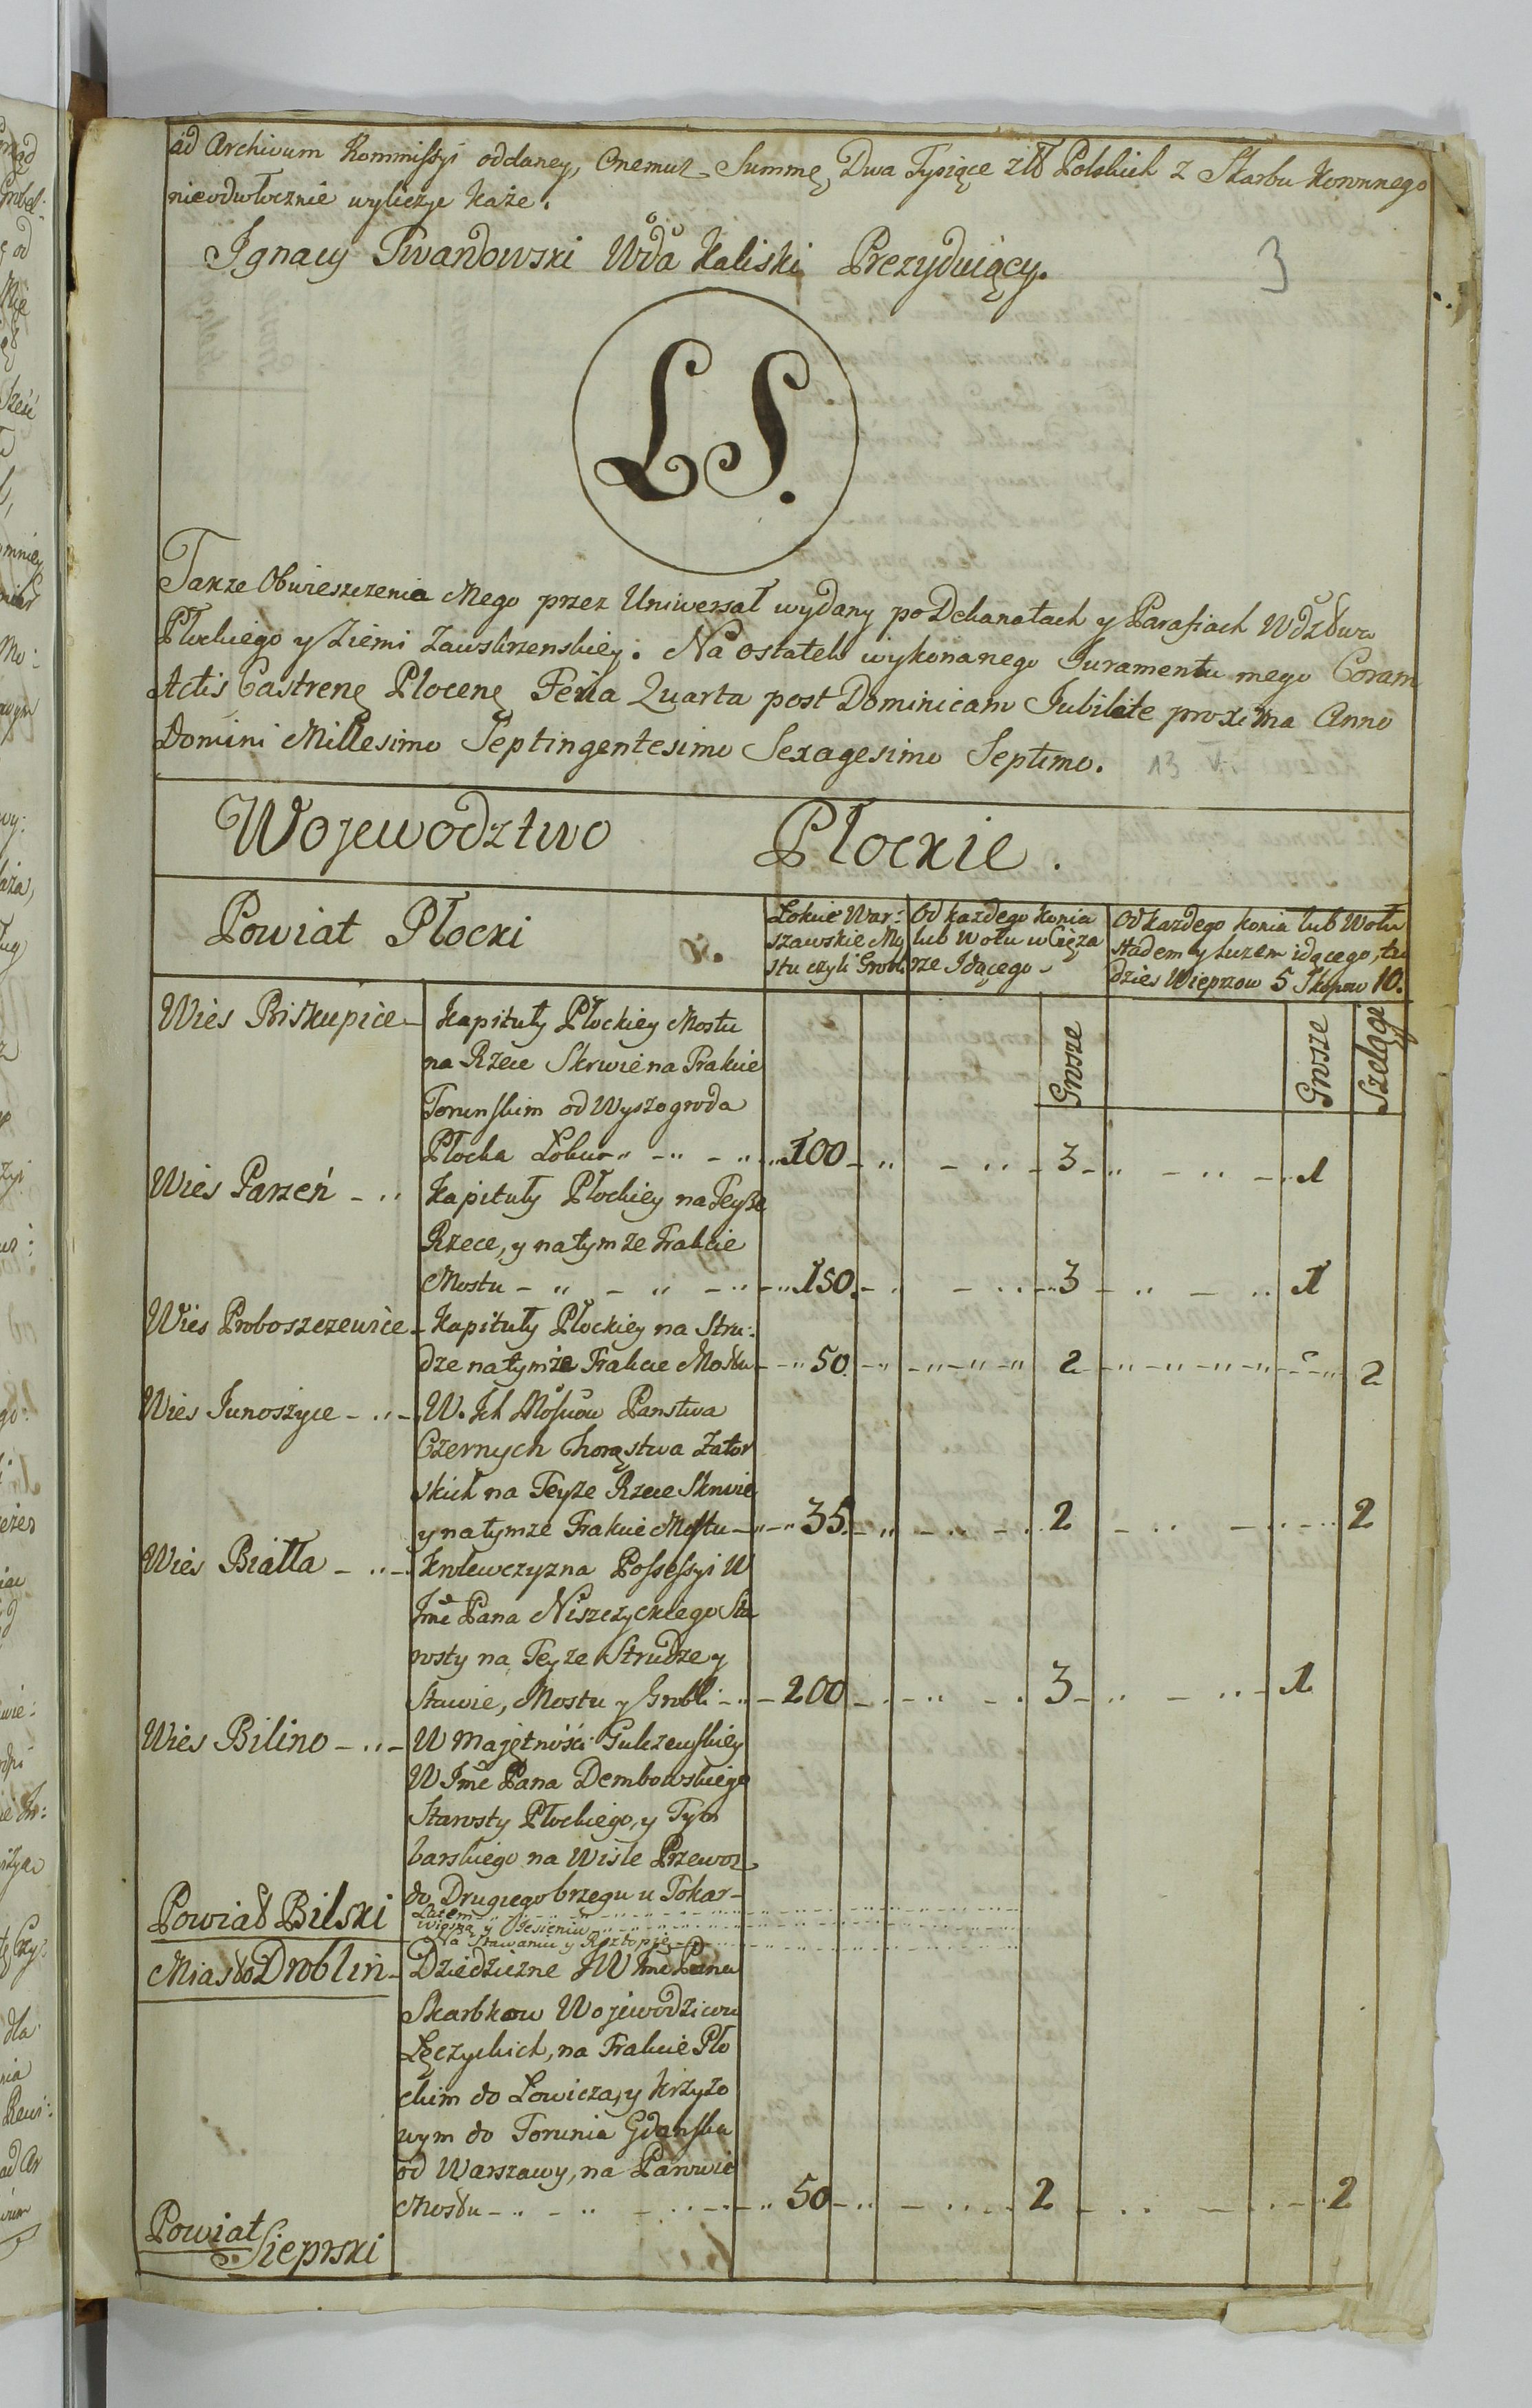 ad Archivum Kommissyi oddaney, Onemuz Summę Dwa Tysiące złł Polskich z Skarbu Koronnego
nieodwłocznie wyliczyć każe.
Ignacy Twardowski Wda Kaliski Prezyduiący.
3
LS.
Także Obwieszczenia Mego przez Uniwersał wydany po Dekanatach y Parafiach Wdztwa
Płockiego y Ziemi Zawskrzenskiey: Na ostatek wykonanego Juramentu mego Coram
Actis Castrenę Plocenę Feria Quarta post Dominicam Jubilate proxima Anno
Domini Millesimo Septingentesimo Sexagesimo Septimo. 13 V.
Wojewodztwo Płockie.
Powiat Płocki
Łokcie War:
szawskie My
stu czyli Grobli
Od każdego konia
lub Wołu w Cięża
rze Idącego
Od każdego konia lub Wołu
stadem y luzem idącego, tu
dzies Wieprzow 5 Skopow 10.
Grosze Grosze Szelągi
Wieś Biskupice - Kapituły Płockiey Mostu
na Rzece Skrwie na Trakcie
Torunskim od Wyszogroda
Płocka Łokci 100 3 1
Wieś Parzeń - Kapituły Płockiey na Teyże
Rzece, y na tymże Trakcie
Mostu 150. 3 1
Wieś Proboszczewice - Kapituły Płockiey na Stru:
dze na tymże Trakcie Mostu 50. 2 2
Wieś Junoszyce - W. Ich Mościow Panstwa
Czernych Chorąstwa Zator
skich na Teyże Rzece Skrwie
y na tymże Trakcie Mostu 35. 2 2
Wieś Biatła - Krolewczyzna Possessyi W
Jmć Pana Niszczyckiego Sta
rosty na Teyże Strudze y
Stawie, Mostu y Grobli 200 3 1
Wieś Bilino - W Majętności Gulczewskiey
W Jmć Pana Dembowskiego
Starosty Płockiego, y Tym
barskiego na Wiśle Przewoz
do Drugiego brzegu u Tokar
Latem
Wiosną y Jesieniu
Na Stawaniu y Roztopie
Powiat Bilski
Miasto Droblin - Dziedziczne JW Jmć Pana
Skarbkow Wojewodzicow
Łęczyckich, na Trakcie Pło
ckim do Łowicza, y krzyżo
wym do Torunia Gdanska
od Warszawy, na Parowie
Mostu 50 2 2
Powiat
Sieprski